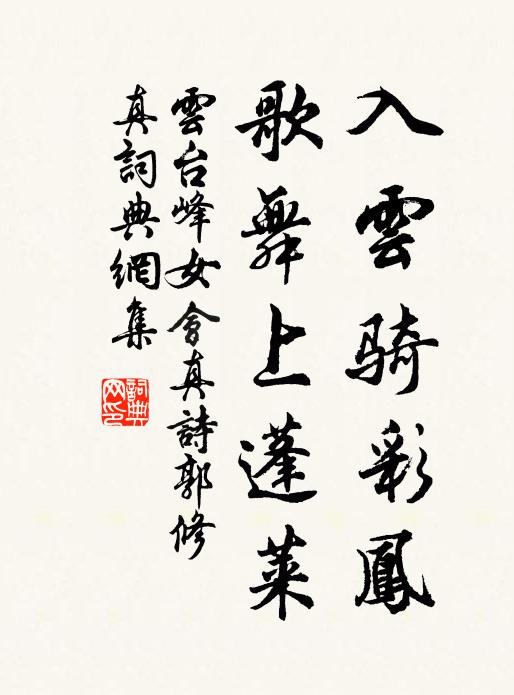 入雲騎彩鳳
歌舞上蓬萊
雲台峰女會真詩郭修
真詞典網集
詞典
网印